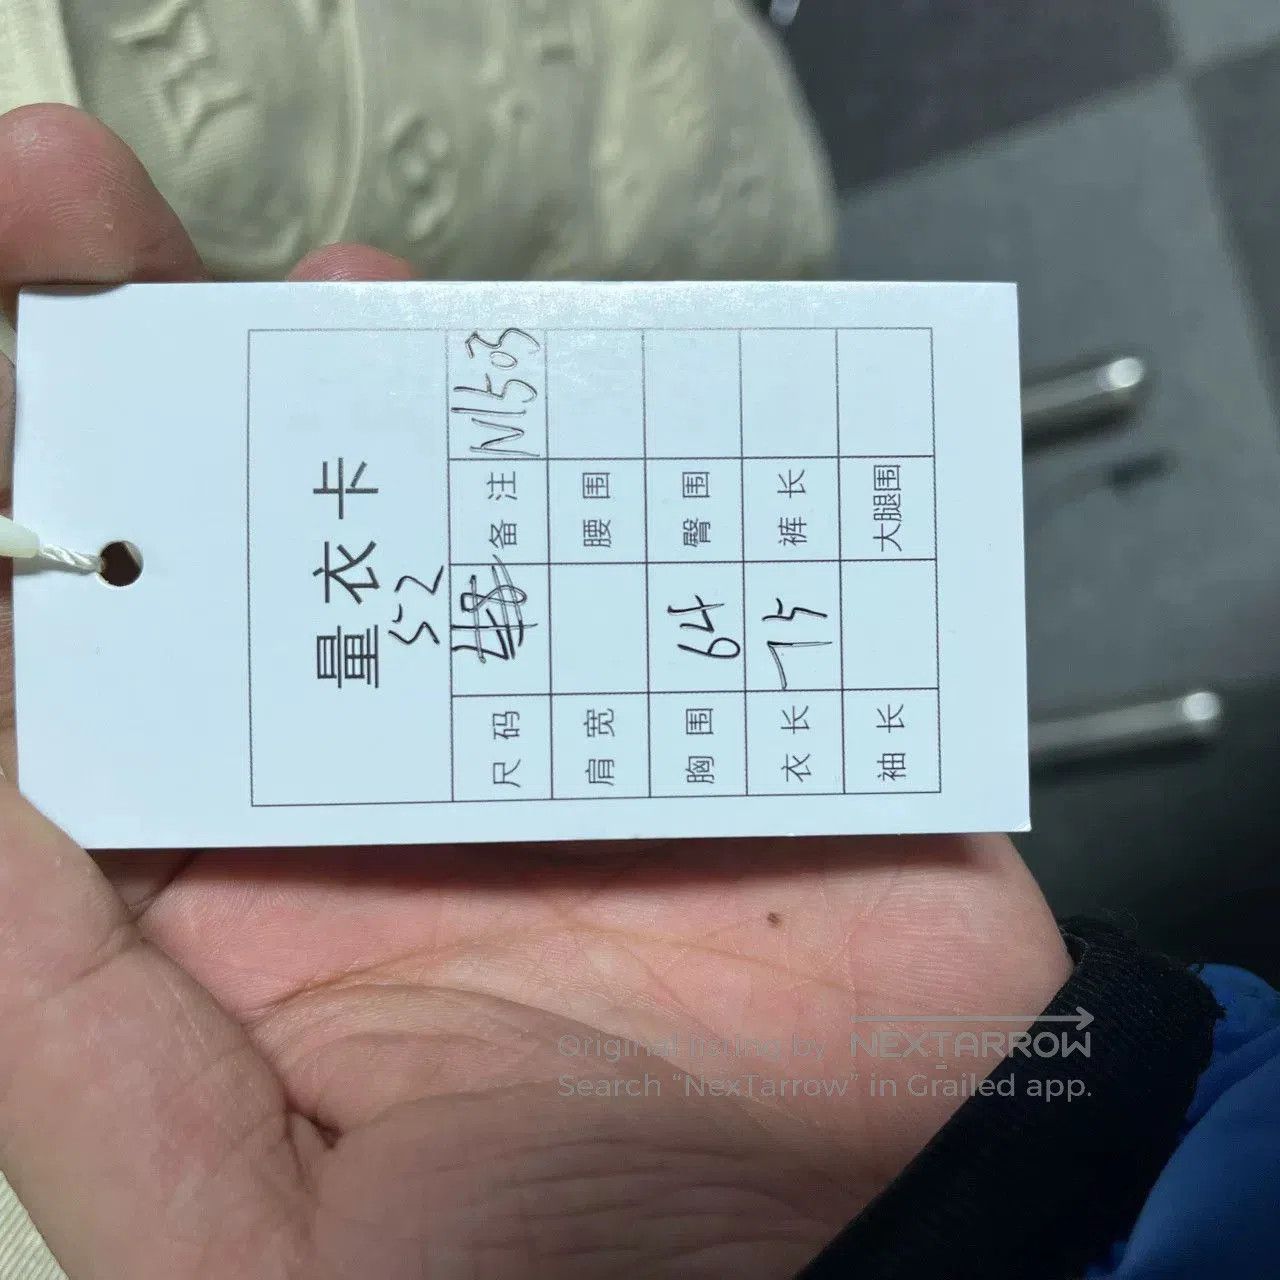 量衣卡
52
尺码 48 备注 N1503
肩宽 腰围
胸围 64 臀围
衣长 75 裤长
袖长 大腿围
Original listing by NEXTARROW
Search “NexTarrow” in Grailed app.